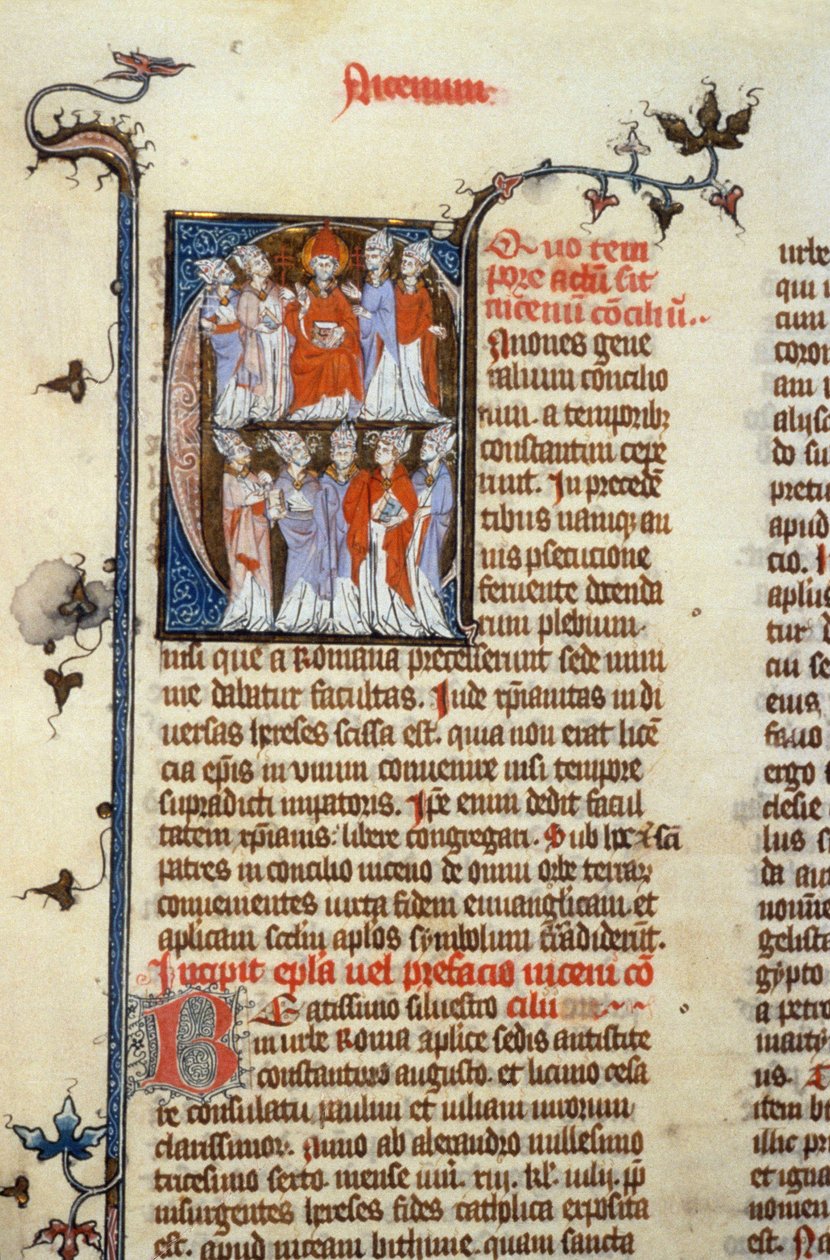 Nicenum.
Quo tem
pore actū sit
nicenū cōciliū..
Anones gene
ralium concilio
rum. a temporibz
constantini cepe
runt. In precedē
tibus namqz an
nis psecutione
feruente docenda
rum plebium.
nisi que a Romana precesserunt sede mini
me dabatur facultas. Inde xp̄ianitas in di
uersas hereses scissa est. quia non erat licē
cia ep̄is in vnum conuenire nisi tempore
supradicti impatoris. Ip̄e enim dedit facul
tatem xp̄ianis. libere congregari. Sub hoc z sc̄i
patres in concilio niceno de omni orbe terrarz
conuenientes iuxta fidem euuanglicam. et
aplicam scdm aplos symbolum tradiderūt.
Incipit epl̄a uel prefacio niceni cō
Beatissimo siluestro cilii
in urbe Roma aplice sedis antistite
constantino augusto. et licinio cesa
re consulatu paulini et iuliani uirorum
clarissimorz. Anno ab alexandro millesimo
tricesimo sexto. mense iuni. xiii. kl̄. iulij. pp̄
insurgentes hereses fides catholica exposita
est. apud niceam bithinie. quam sancta
urbe
qui
coron
am
aliisa
do su
pretu
apud
cio.
aplius
tur
cui se
eius
fauo
ergo
clesie
lus
da
nomie
gelista
gypto
a petro
martyr
us.
item
illic pri
et igna
nomen
est. Na